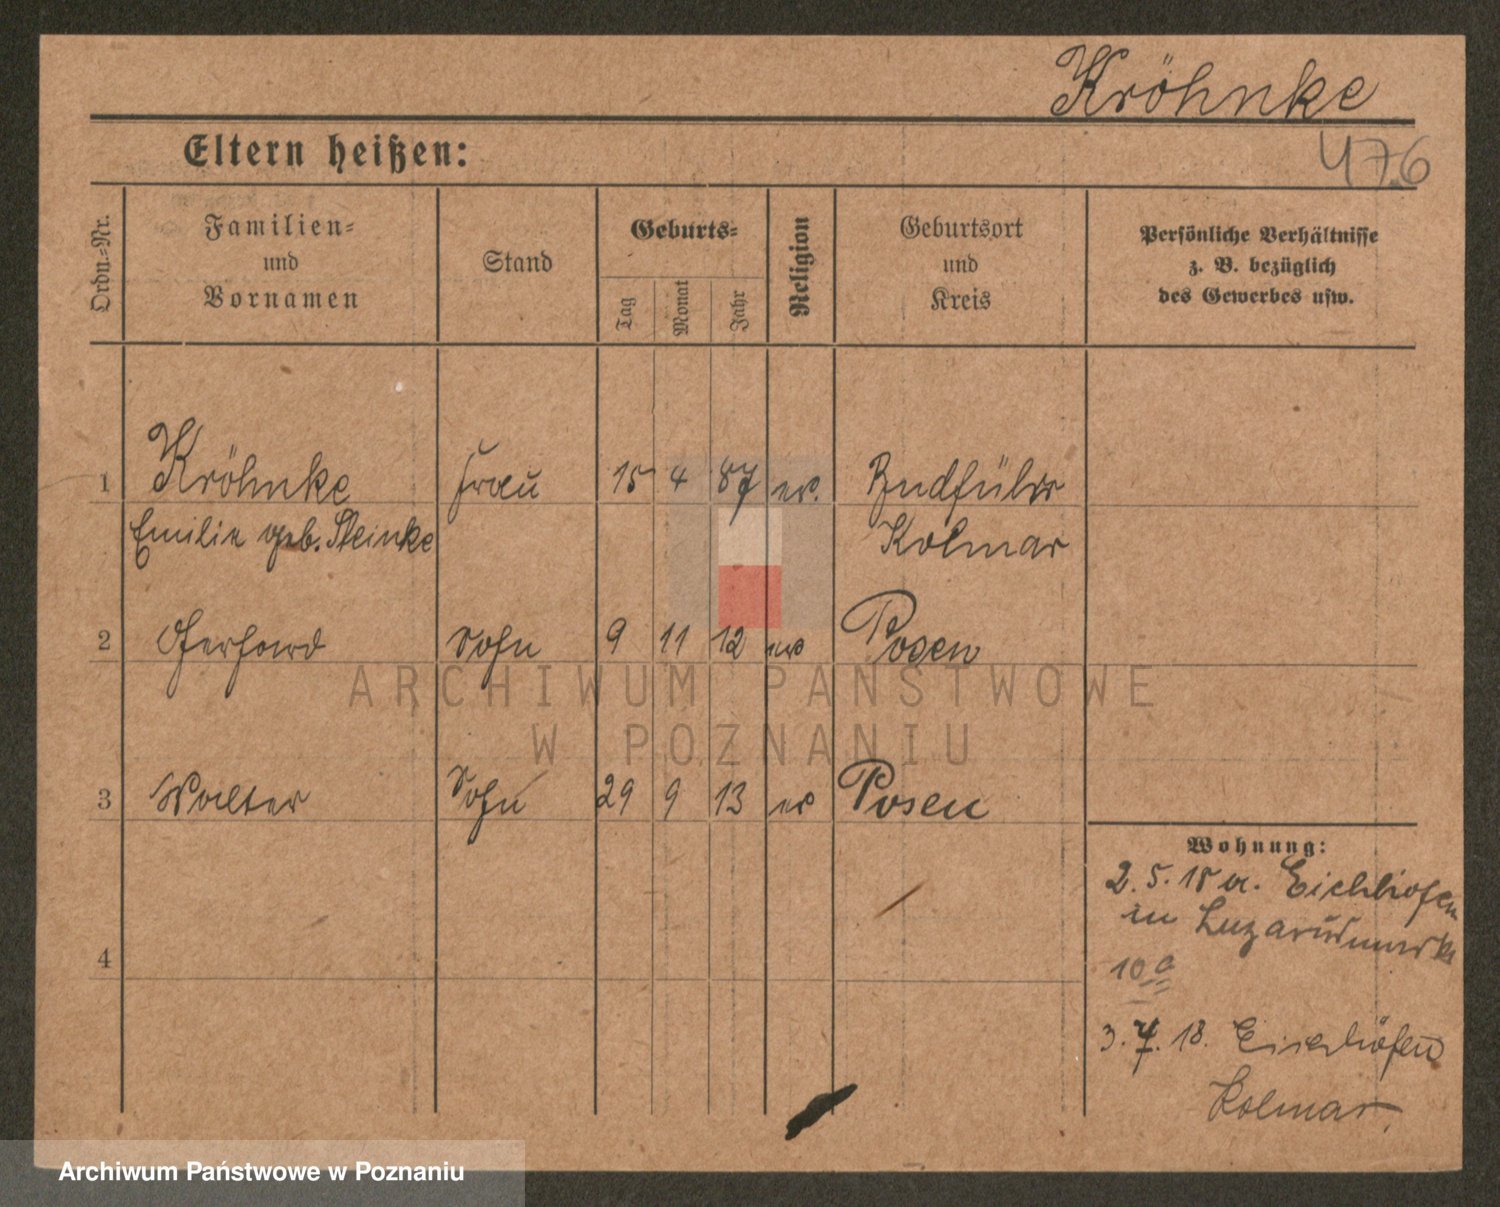 Kröhnke
476
Eltern heißen:
Ordn.-Nr.
Familien-
und
Vornamen
Stand
Geburts-
Tag
Monat
Jahr
Religion
Geburtsort
und
Kreis
Persönliche Verhältnisse
z. B. bezüglich
des Gewerbes usw.
1 Kröhnke Frau 15 4 87 ev.
Emilie geb. Steinke Kolmar
2 Gerhard Sohn 9 11 12 ev Posen
ARCHIWUM PAŃSTWOWE
W POZNANIU
3 Walter Sohn 29 9 13 ev Posen
Wohnung:
2. 5. 18 a. Eichhofen
in
10a
4
3. 7. 18.
Kolmar.
Archiwum Państwowe w Poznaniu